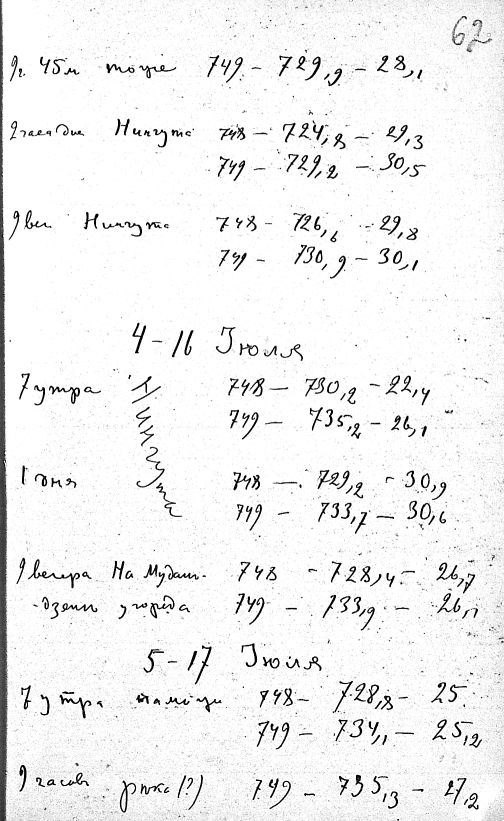 62
9ч. 45м тоже 749 - 729,9 - 28,1
2 часа дня Нингута 748 - 724,8 - 29,3
749 - 729,2 - 30,5
9 веч. Нингута 748 - 726,6 - 29,8
749 - 730,9 - 30,1
4-16 Iюля
7 утра Нингута 748 - 730,2 - 22,4
749 - 735,2 - 26,1
1 дня 748 - 729,2 - 30,9
749 - 733,7 - 30,6
9 вечера На Мудань- 748 - 728,4 - 26,7
-дзени у города 749 - 733,9 - 26,1
5-17 Iюля
7 утра там 748 - 728,8 - 25
749 - 734,1 - 25,2
9 часов река (?) 749 - 735,3 - 27,2